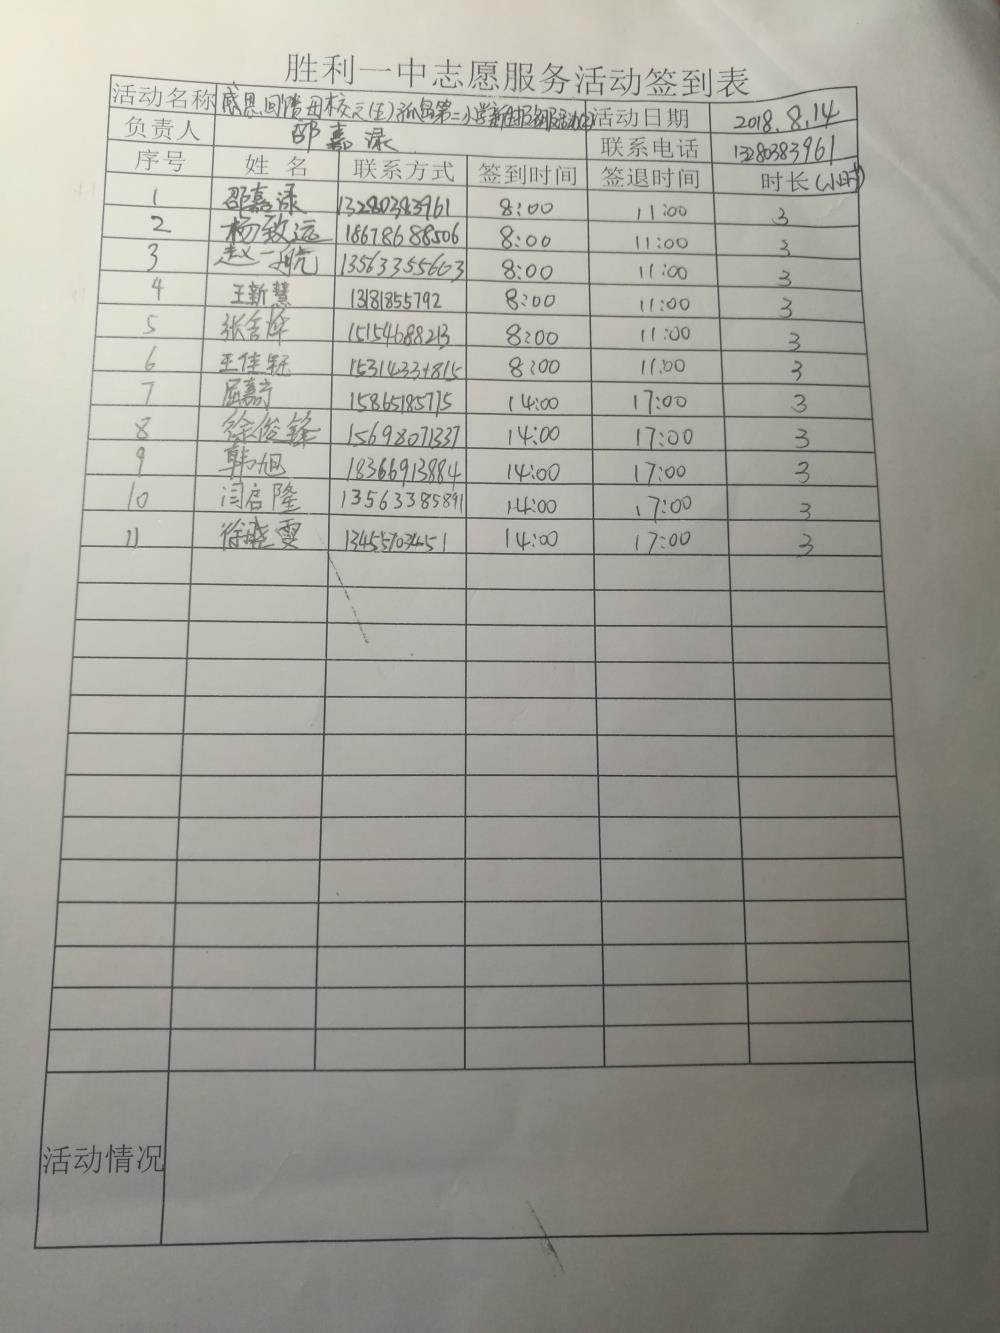 胜利一中志愿服务活动签到表
活动名称 感恩回馈母校 孤岛第二小学 活动日期 2018.8.14
负责人 邵嘉渌 联系电话 13280383961
序号 姓名 联系方式 签到时间 签退时间 时长(小时)
1 邵嘉渌 13280383961 8:00 11:00 3
2 杨致远 18678688506 8:00 11:00 3
3 赵一航 13563355603 8:00 11:00 3
4 王新慧 13181855792 8:00 11:00 3
5 张含烨 15154688213 8:00 11:00 3
6 王佳钰 8:00 11:00 3
7 屈嘉宁 15865185775 14:00 17:00 3
8 徐俊锋 15698071337 14:00 17:00 3
9 韩旭 18366913884 14:00 17:00 3
10 闫启隆 13563385891 14:00 17:00 3
11 徐晓雯 13455703451 14:00 17:00 3
活动情况